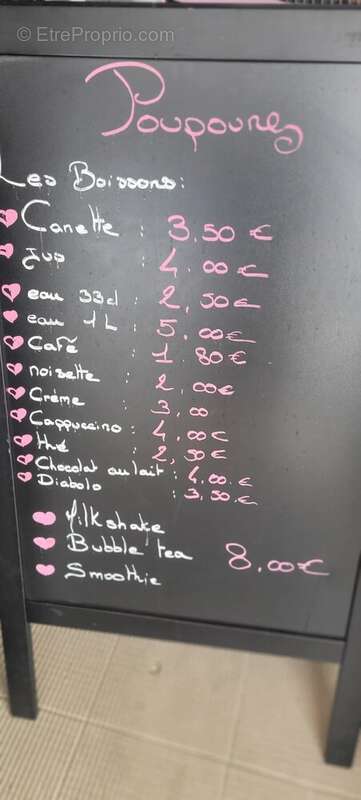 © EtrePropio.com
Poupounes
Les Boissons:
Canette : 3,50 €
Jus : 4.00 €
eau 33cl : 2,50 €
eau 1L : 5,00 €
Café : 1.80 €
noisette : 2,00 €
Crème : 3,00
Cappuccino : 4,00 €
thé : 2,50 €
Chocolat au lait : 4,00 €
Diabolo : 3,50 €
Milkshake
Bubble tea 8,00 €
Smoothie